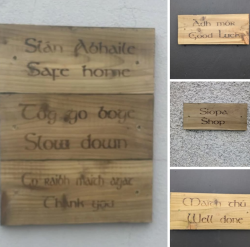 Slán Abhaile
Safe home
Tóg go bogé
Slow down
Go raibh maith agat
Thank you
Ádh mór
Good Luck
Siopa
Shop
Maith thú
Well done